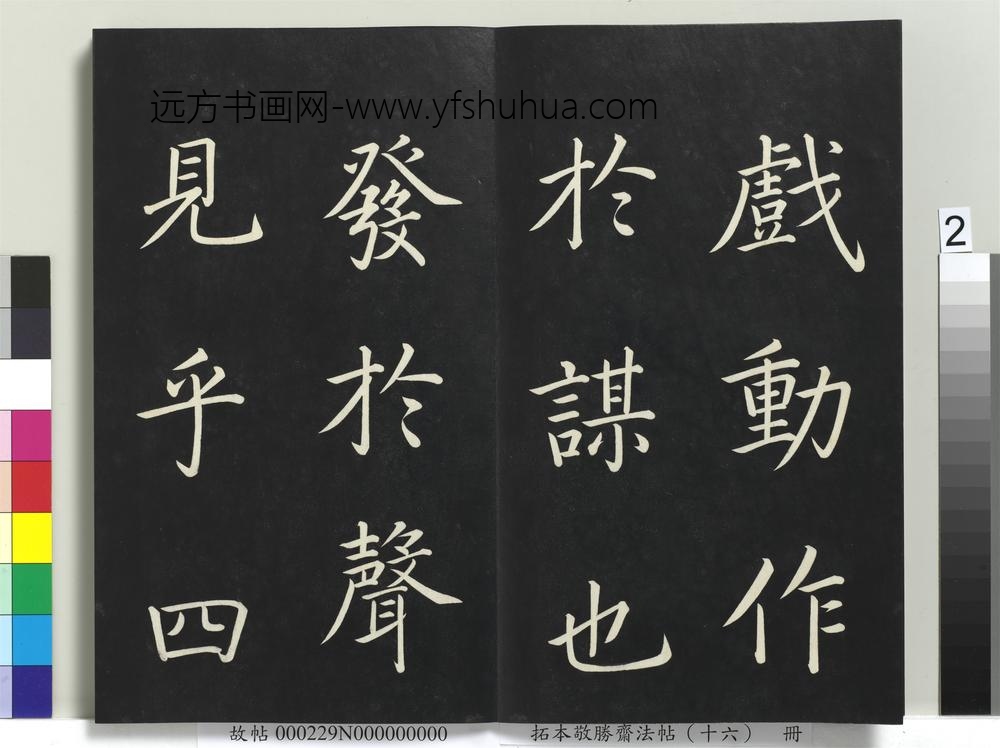 远方书画网-www.yfshuhua.com
戲動作
於謀也
發於聲
見乎四
2
故帖 000229N000000000
拓本敬勝齋法帖（十六） 冊